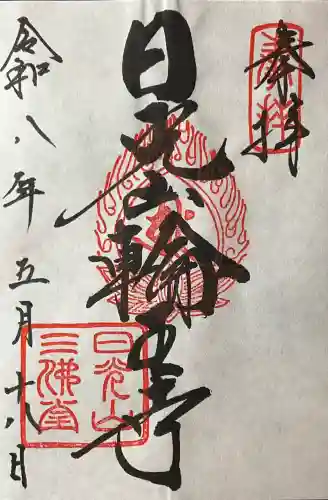 奉拝
日光山輪王寺
令和八年五月十八日
日光山
三佛堂